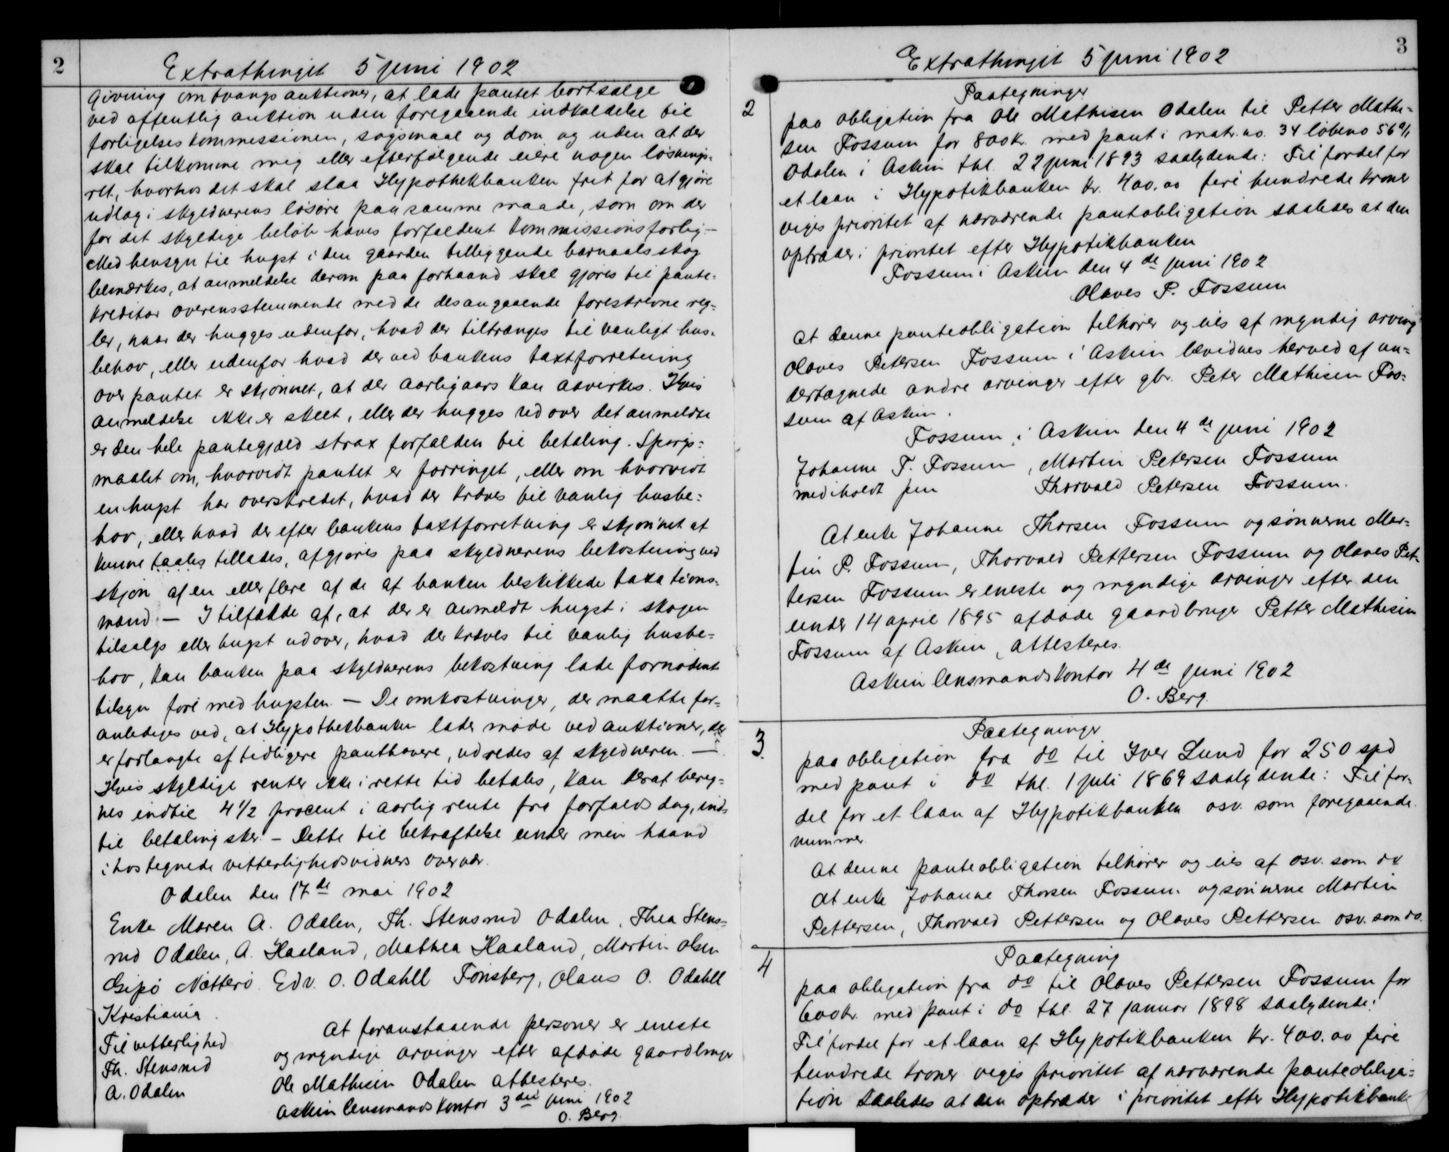 2
Extrathinget 5 juni 1902
givning om tvangsauktioner, at lade pantet bortsælge
ved offentlig auktion uden foregaaende indkaldelse til
forligelseskommissionen, søgsmaal og dom og uden at der
skal tilkomme mig eller efterfølgende eiere nogen løsnings=
ret, hvorhos det skal staa Hypothekbanken frit for at gjøre
udlæg i skyldnerens løsøre paa samme maade, som om der
for det skyldige beløb haves forfaldent kommissionsforlig –
Med hensyn til hugst i den gaarden tilliggende barnaalsskog
bemærkes, at anmeldelse derom paa forhaand skal gjøres til pante=
kreditor overensstemmende med de desangaaende foreskrevne reg=
ler, naar der hugges udenfor, hvad der tiltrænges til vanligt hus=
behov, eller udenfor hvad der ved bankens taxtforretning
over pantet er skjønnet, at der aarligaars kan advirkes. Hvis
anmeldelse ikke er skeet, eller der hugges ud over det anmeldte
er den hele pantegjæld strax forfalden til betaling. Spørgs=
maalet om, hvorvidt pantet er forringet, eller om hvorvidt
en hugst har overskredet, hvad der kræves til vanlig husbe=
hov, eller hvad der efter bankens taxtforretning er skjønnet at
kunne taales tillades, afgjøres paa skyldnerens bekostning ved
skjøn af en eller flere af de af banken beskikkede taxations=
mænd. – I tilfælde af, at der er anmeldt hugst i skogen
tilsalgs eller hugst udover, hvad der kræves til vanlig husbe=
hov, kan banken paa skyldnerens bekostning lade fornødent
tilsyn føre med hugsten. – De omkostninger, der maatte for=
anlediges ved, at Hypothekbanken lader møde ved auktioner, der
er forlangte af tidligere panthavere, udredes af skyldneren. –
Hvis skyldige renter ikke i rette tid betales, kan deraf bereg=
nes indtil 4½ procent i aarlig rente fra forfaldsdag, ind=
til betaling sker. – Dette til bekræftelse under men haand
i hostegnede vitterlighedsvidners overvær.
Odalen den 17de mai 1902
Enke Maren A. Odalen, Th. Stensrud Odalen, Thea Stens=
rud Odalen, A. Haaland, Mathea Haaland, Martin Olsen
Gipø Nøtterø. Edv. O. Odahll Tønsberg, Olaus O. Odahll
Kristiania.
Til vitterlighed
Th. Stensrud
A. Odalen
At foranstaaende personer er eneste
og myndige arvinger efter afdøde gaardbruger
Ole Mathisen Odalen attesteres.
Askim lensmandskontor 3die juni 1902
O. Berg.
3
Extrathinget 5 juni 1902
Paategninger
2
paa obligation fra Ole Mathisen Odalen til Petter Mathi=
sen Fossum for 800 kr. med pant i matr. no. 34 løbeno 56
Odalen i Askim thl. 22 juni 1893 saalydende: Til fordel for
et laan i Hypotikbanken kr. 400.00 fire hundrede kroner
viges prioritet af nærværende pantobligation saaledes at den
optræder i prioritet efter Hypotikbanken
Fossum i Askim den 4de juni 1902
Olaves P. Fossum
At denne panteobligation tilhører og eies af myndig arving
Olaves Petersen Fossum i Askim bevidnes herved af un=
dertegnede andre arvinger efter gbr. Peter Mathisen Fos=
sum af Askim.
Fossum i Askim den 4de juni 1902
Johanne T. Fossum, Martin Petersen Fossum
med iholdt pen Thorvald Petersen Fossum.
At enke Johanne Thorsen Fossum og sønnerne Mar=
tin P. Fossum, Thorvald Pettersen Fossum og Olaves Pet=
tersen Fossum er eneste og myndige arvinger efter den
under 14 april 1895 afdøde gaardbruger Petter Mathisen
Fossum af Askim, attesteres.
Askim lensmandskontor 4de juni 1902
O. Berg.
3.
Paategninger
paa obligation fra do til Iver Lund for 250 spd
med pant i do thl. 1 juli 1869 saalydende: Til for=
del for et laan af Hypotikbanken osv. som foregaaende
nummer.
At denne panteobligation tilhører og eies af osv. som do
At enke Johanne Thorsen Fossum og sønnerne Martin
Pettersen, Thorvald Pettersen og Olaves Pettersen osv. som do.
4
Paategning
paa obligation fra do til Olaves Pettersen Fossum for
600 kr. med pant i do thl. 27 januar 1898 saalydende:
Til fordel for et laan af Hypotikbanken kr. 400.00 fire
hundrede kroner viges prioritet af nærværende panteobliga=
tion saaledes at den optræder i prioritet efter Hypotikbanke